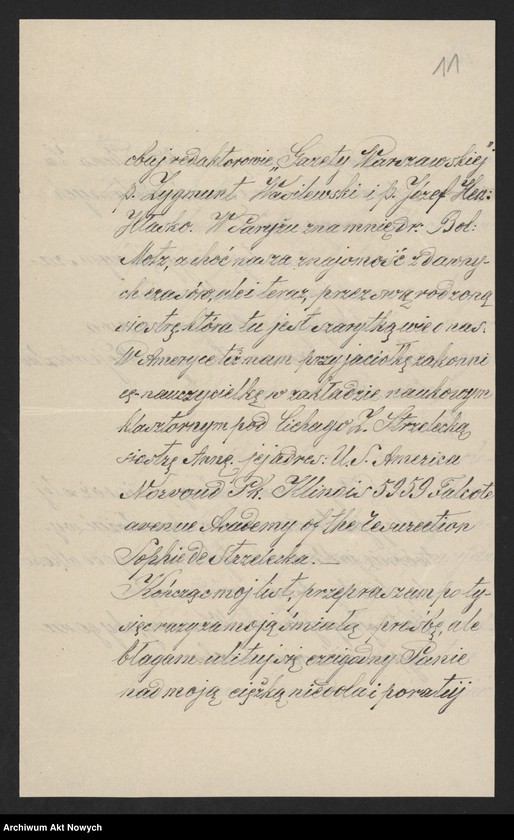 11
obaj redaktorowie „Gazety Warszawskiej"
p. Zygmunt Wasilewski i p. Józef Hła:
Hłasko. W Paryżu zna mnię dr. Bol:
Motz, a choć nasza znajomość z dawny-
ch czasów, ale i teraz, przez swą rodzoną
siostrę która tu jest szarytką wie o nas.
W Ameryce też mam przyjaciółkę zakonni
cę-nauczycielkę w zakładzie naukowym
klasztornym pod Cichago Z. Strzelecką
siostrę Annę. jej adres: U. S. America
Norvoud Pk. Illinois 5959 Talcote
avenue Academy of the Resurection
Sophie de Strzelecka. —
Kończąc mój list, przepraszam po ty-
siąc razy za moją śmiałą prośbę, ale
błagam ulituj się czcigodny Panie
nad moją ciężką niedolą i poratuj
Archiwum Akt Nowych